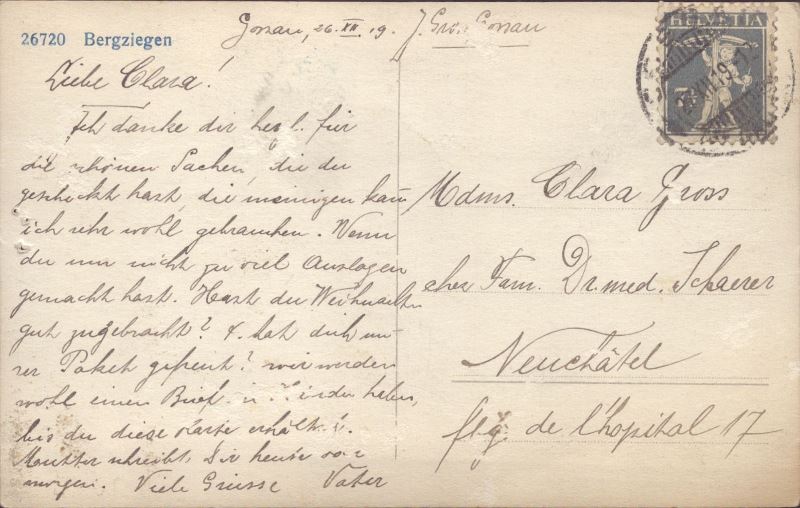 26720 Bergziegen
Gossau, 26. XII. 19. J. Gross. Gossau
HELVETIA
Liebe Clara!
Ich danke dir herzl. für
die schönen Sachen, die du
geschickt hast, die meinigen kann
ich sehr wohl gebrauchen. Wenn
du nur nicht zu viel Auslagen
gemacht hast. Hast du Weihnachten
gut zugebracht? & hat dich un-
ser Paket gefreut? wir werden
wohl einen Brief haben,
bis du diese Karte erhältst.
Mutter schreibt Dir heute oder
morgen. Viele Grüsse Vater
Mdms. Clara Gross
chez Fam. Dr. med. Schaerer
Neuchâtel
fbg. de l'hopital 17